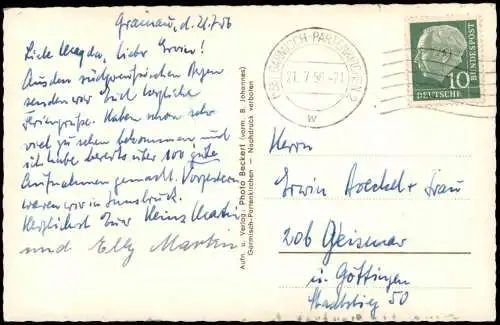 Grainau, d. 21.7.56
Liebe Magda, lieber Erwin!
Aus dem Regen
senden wir Euch herzliche
Feriengrüße. Haben schon sehr
viel zu sehen bekommen und
ich habe bereits über 100 gute
Aufnahmen gemacht. Vorgestern
waren wir in Innsbruck.
Herzlichst Euer Heinz Martin
und Elly Martin
Aufn. u. Verlag: Photo Beckert (vorm. B. Johannes)
Garmisch-Partenkirchen — Nachdruck verboten
GARMISCH-PARTENKIRCHEN 2
21.7.56-21
w
10
DEUTSCHE BUNDESPOST
Herrn
Erwin u. Frau
20b Geismar
ü. Göttingen
50